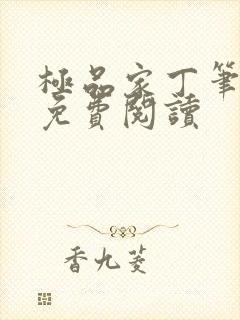 極品家丁筆
免費閱讀
香九菱